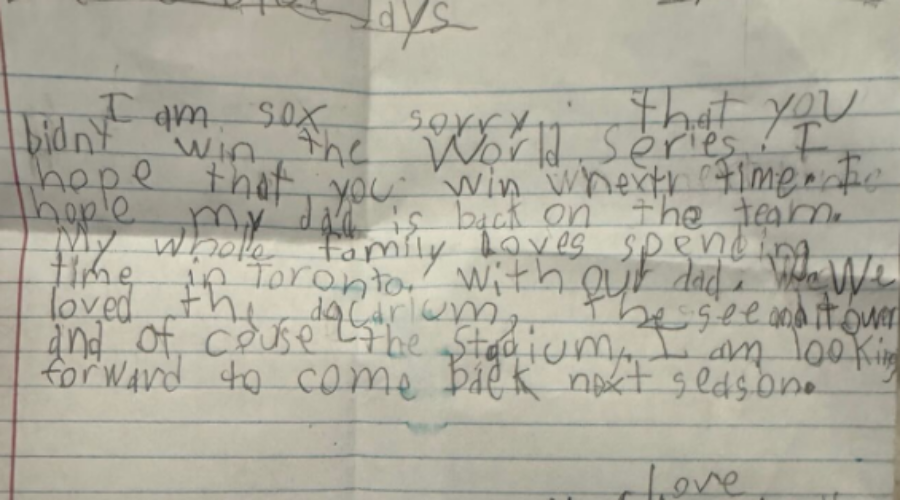 I am sox sorry that you
bidnt win the World Series. I
hope that you win whextr time. I
hope my dad is back on the team.
My whole family Loves spending
time in Toronto. with our dad. We
loved the aqcarium, the see and it ower
and of couse the Stadium. I am looking
forward to come back next season.
Love